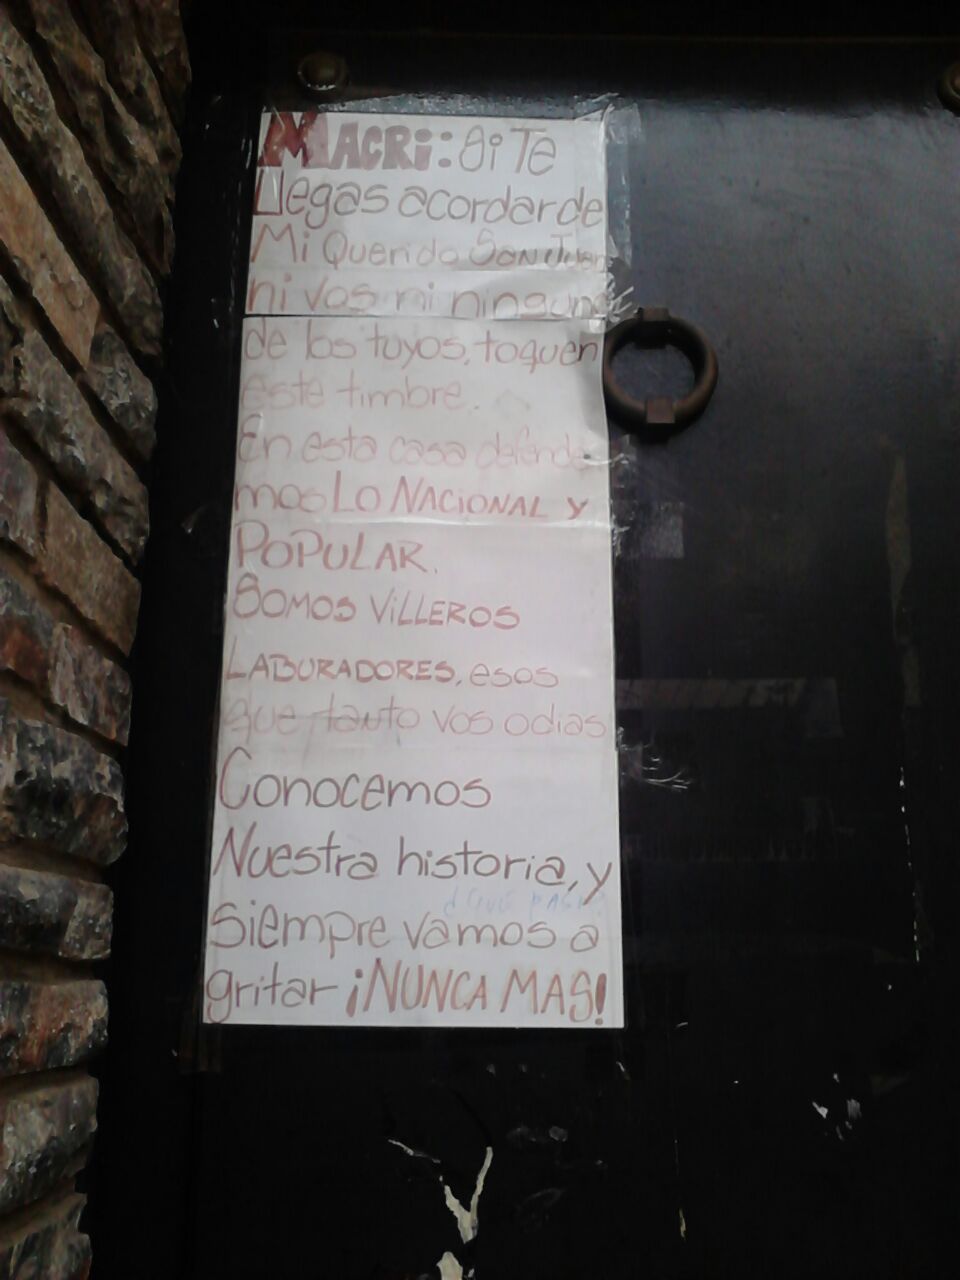 MACRi: Si Te
LLegas acordar de
Mi Querido San Juan
ni vos ni ninguno
de los tuyos, toquen
este timbre.
En esta casa defende
mos Lo NACIONAL y
POPULAR.
SOMOS ViLLEROS
LABURADORES, esos
que tanto vos odias
Conocemos
Nuestra historia, y
siempre vamos a
gritar ¡NUNCA MAS!